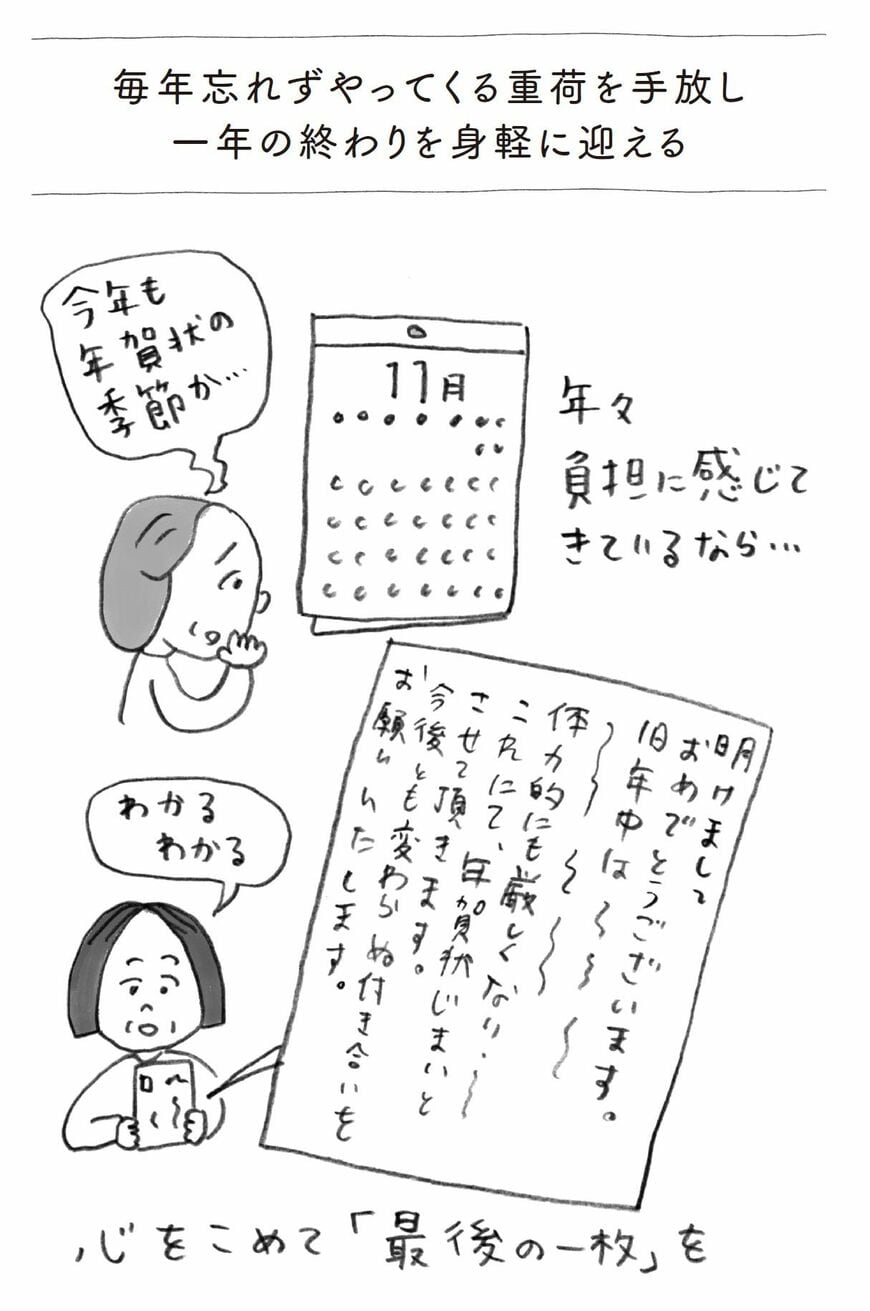 毎年忘れずやってくる重荷を手放し
一年の終わりを身軽に迎える
今年も
年賀状の
季節か…
11月
年々
負担に感じて
きているなら…
明けまして
おめでとうございます。
旧年中は
体力的にも厳しくなり、
これにて、年賀状じまいと
させて頂きます。
今後とも変わらぬ付き合いを
お願いいたします。
わかる
わかる
心をこめて「最後の一枚」を